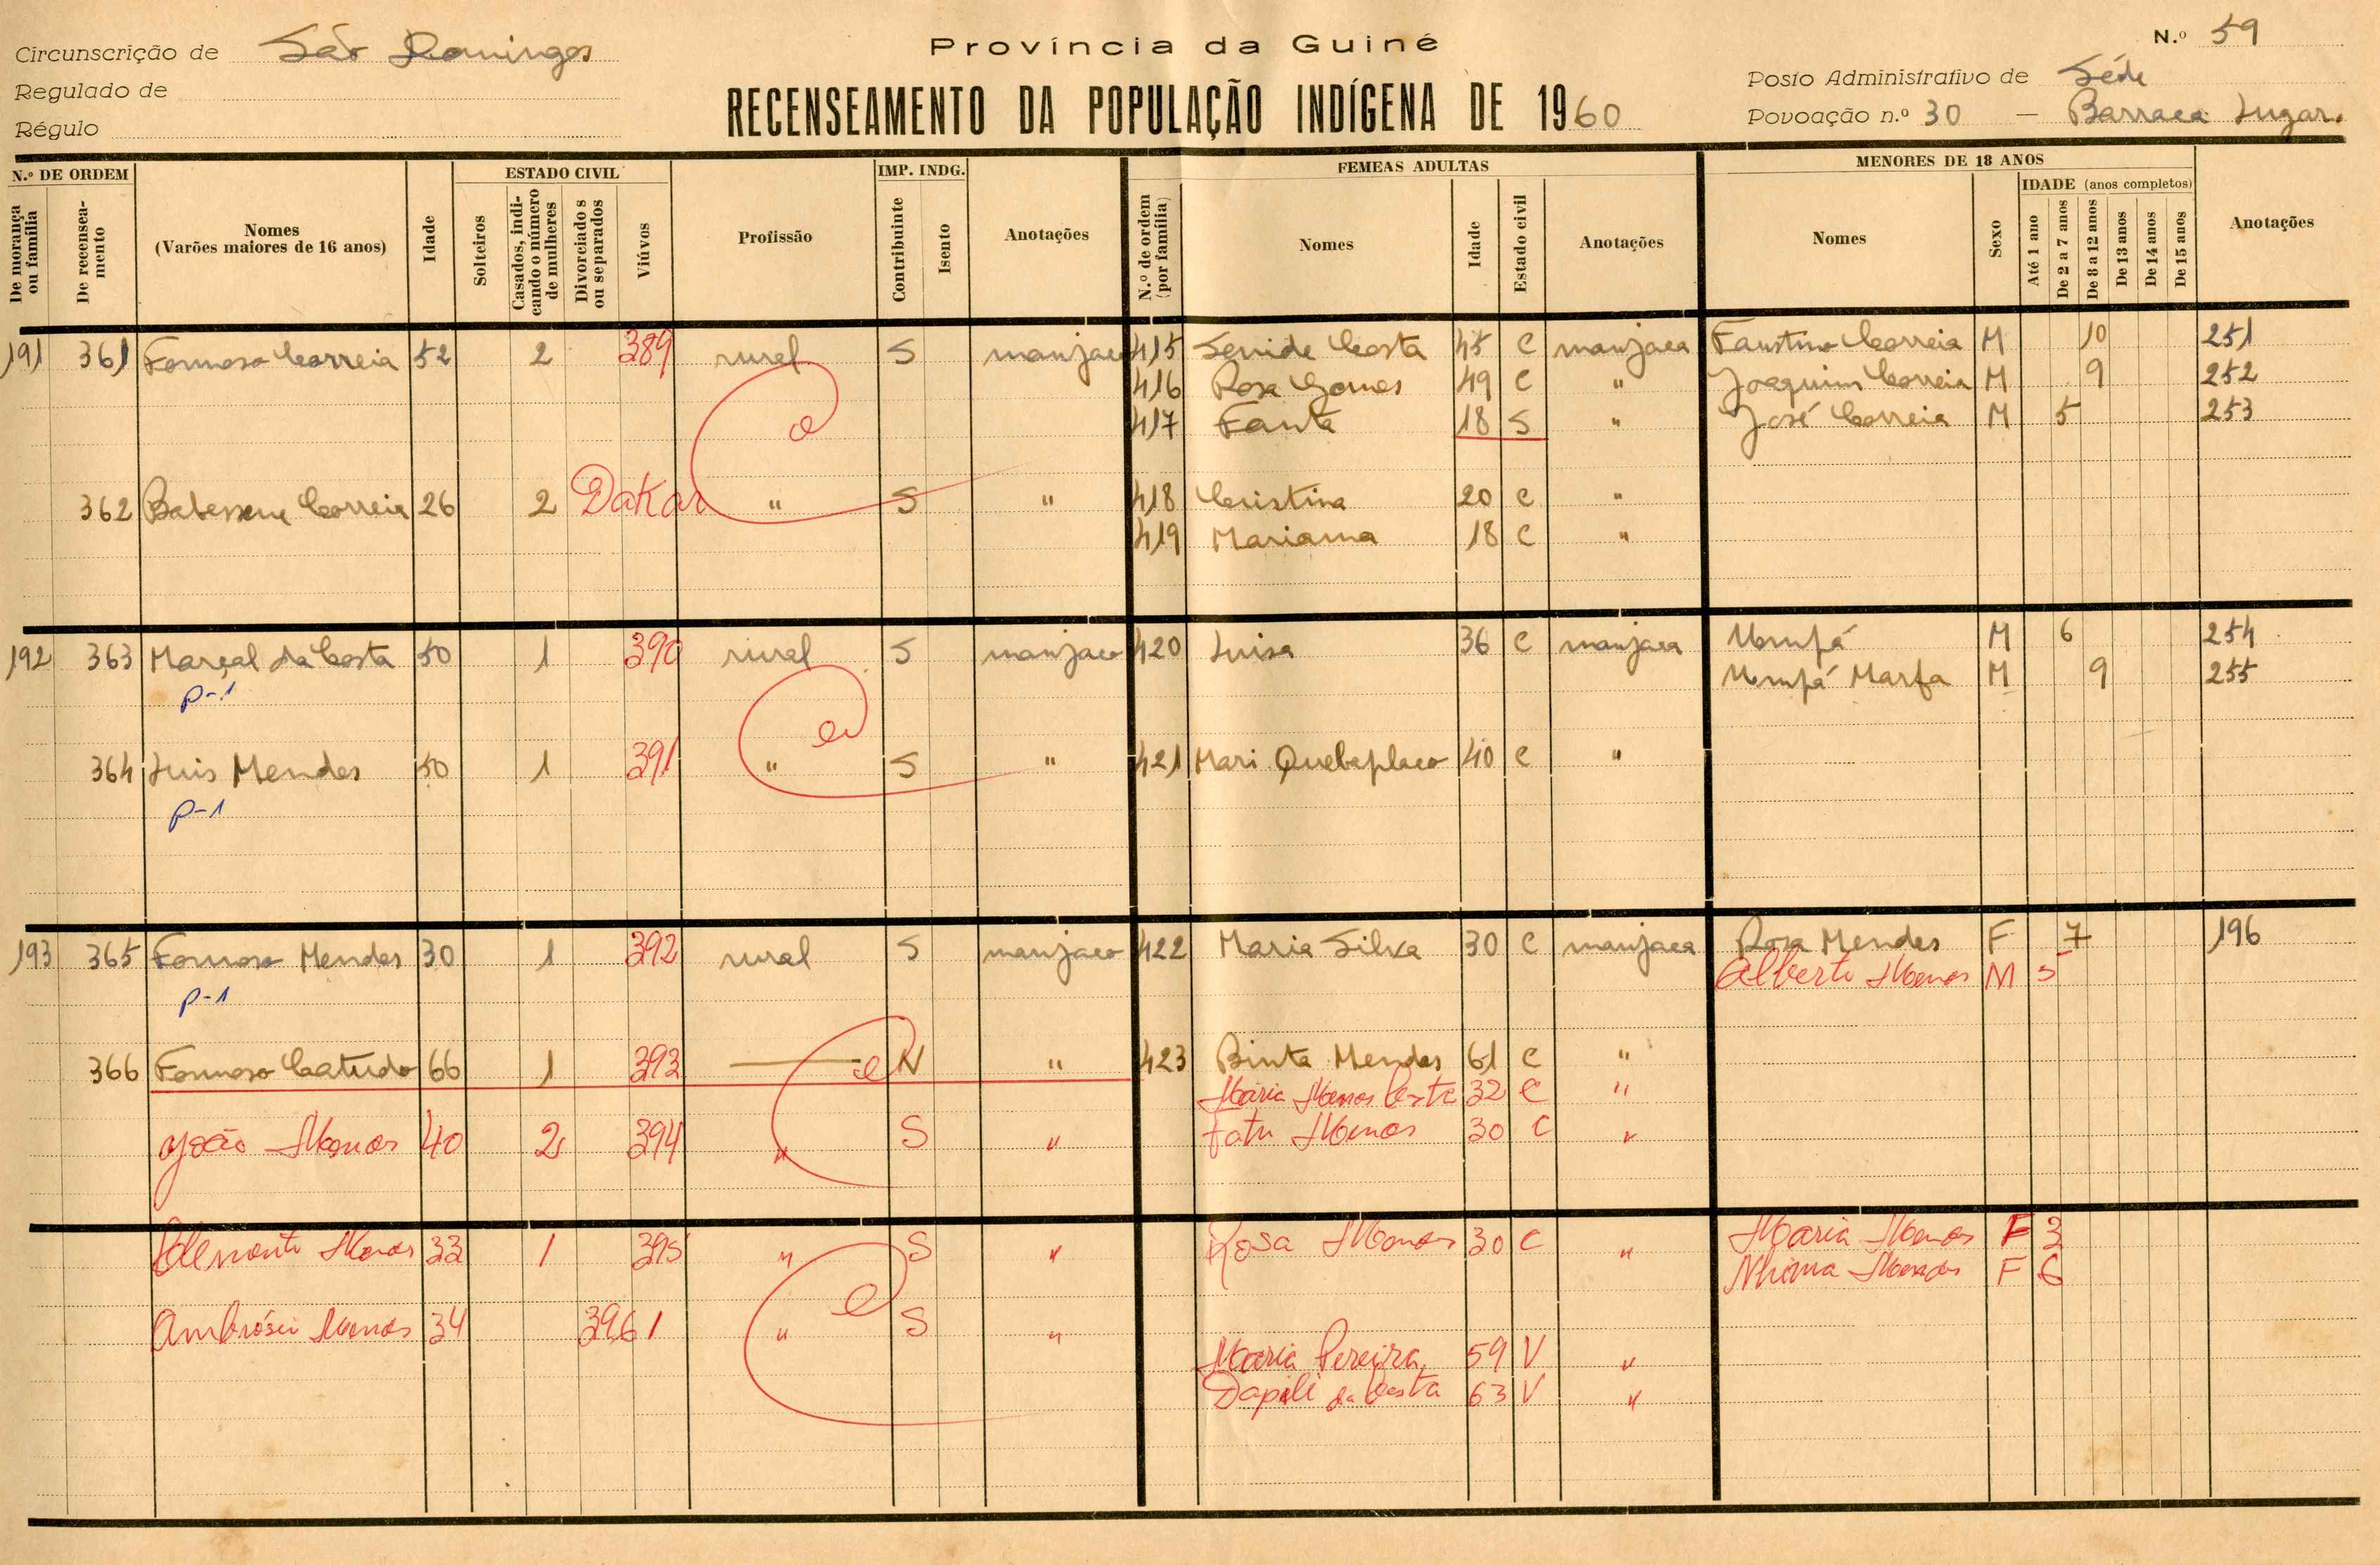 Província da Guiné
N.º 59
Circunscrição de São Domingos
Regulado de
Régulo
RECENSEAMENTO DA POPULAÇÃO INDÍGENA DE 1960
Posto Administrativo de Séde
Povoação n.º 30 — Barraca Lugar.
N.º DE ORDEM
De morança ou família
De recenseamento
Nomes
(Varões maiores de 16 anos)
Idade
ESTADO CIVIL
Solteiros
Casados, indicando o número de mulheres
Divorciado s ou separados
Viúvos
Profissão
IMP. INDG.
Contribuinte
Isento
Anotações
FEMEAS ADULTAS
N.º de ordem (por família)
Nomes
Idade
Estado civil
Anotações
MENORES DE 18 ANOS
Nomes
Sexo
IDADE (anos completos)
Até 1 ano
De 2 a 7 anos
De 8 a 12 anos
De 13 anos
De 14 anos
De 15 anos
Anotações
191 361 Formoso Correia 52 2 389 rural S manjaco 415 Senide Costa 45 C manjaca Faustino Correia M 10 251
416 Rosa Gomes 49 C " Joaquim Correia M 9 252
417 Fanta 18 S " José Correia M 5 253
362 Correia 26 2 Dakar " S " 418 Cristina 20 C "
419 Mariama 18 C "
192 363 Marçal da Costa 50 1 390 rural S manjaco 420 Luisa 36 C manjaca Umpá M 6 254
p-1 Umpá Marfa M 9 255
364 Luis Mendes 50 1 391 " S " 421 Mari 40 C "
p-1
193 365 Formoso Mendes 30 1 392 rural S manjaco 422 Maria Silva 30 C manjaca Rosa Mendes F 7 196
Alberto M 5
p-1
366 Formoso Catudo 66 1 393 — N " 423 Binta Mendes 61 C "
Mária Costa 32 C "
João 40 2 394 " S " Fatu 30 C "
33 1 395 " S " Rosa 30 C " Maria F 3
F 6
Ambrósio 34 396 1 " S "
Maria Pereira 59 V "
Dapili da Costa 63 V "